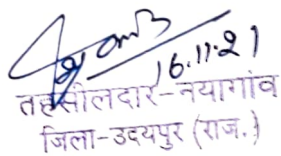 16.11.21
तहसीलदार-नयागांव
जिला-उदयपुर (राज.)